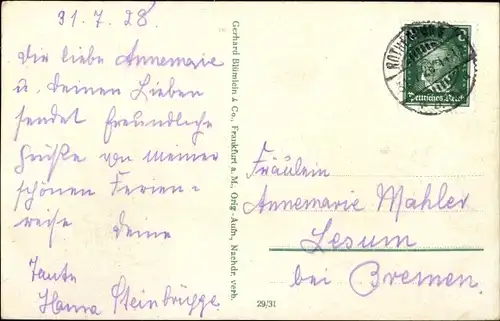 31. 7. 28.
Dir liebe Annemarie
u. deinen Lieben
sendet freundliche
Grüße von meiner
schönen Ferien-
reise deine
Tante
Hanna Steinbrügge.
Gerhard Blümlein & Co., Frankfurt a. M., Orig.-Aufn., Nachdr. verb.
29/31
Deutsches Reich
Fräulein
Annemarie Mahler
Lesum
bei Bremen.